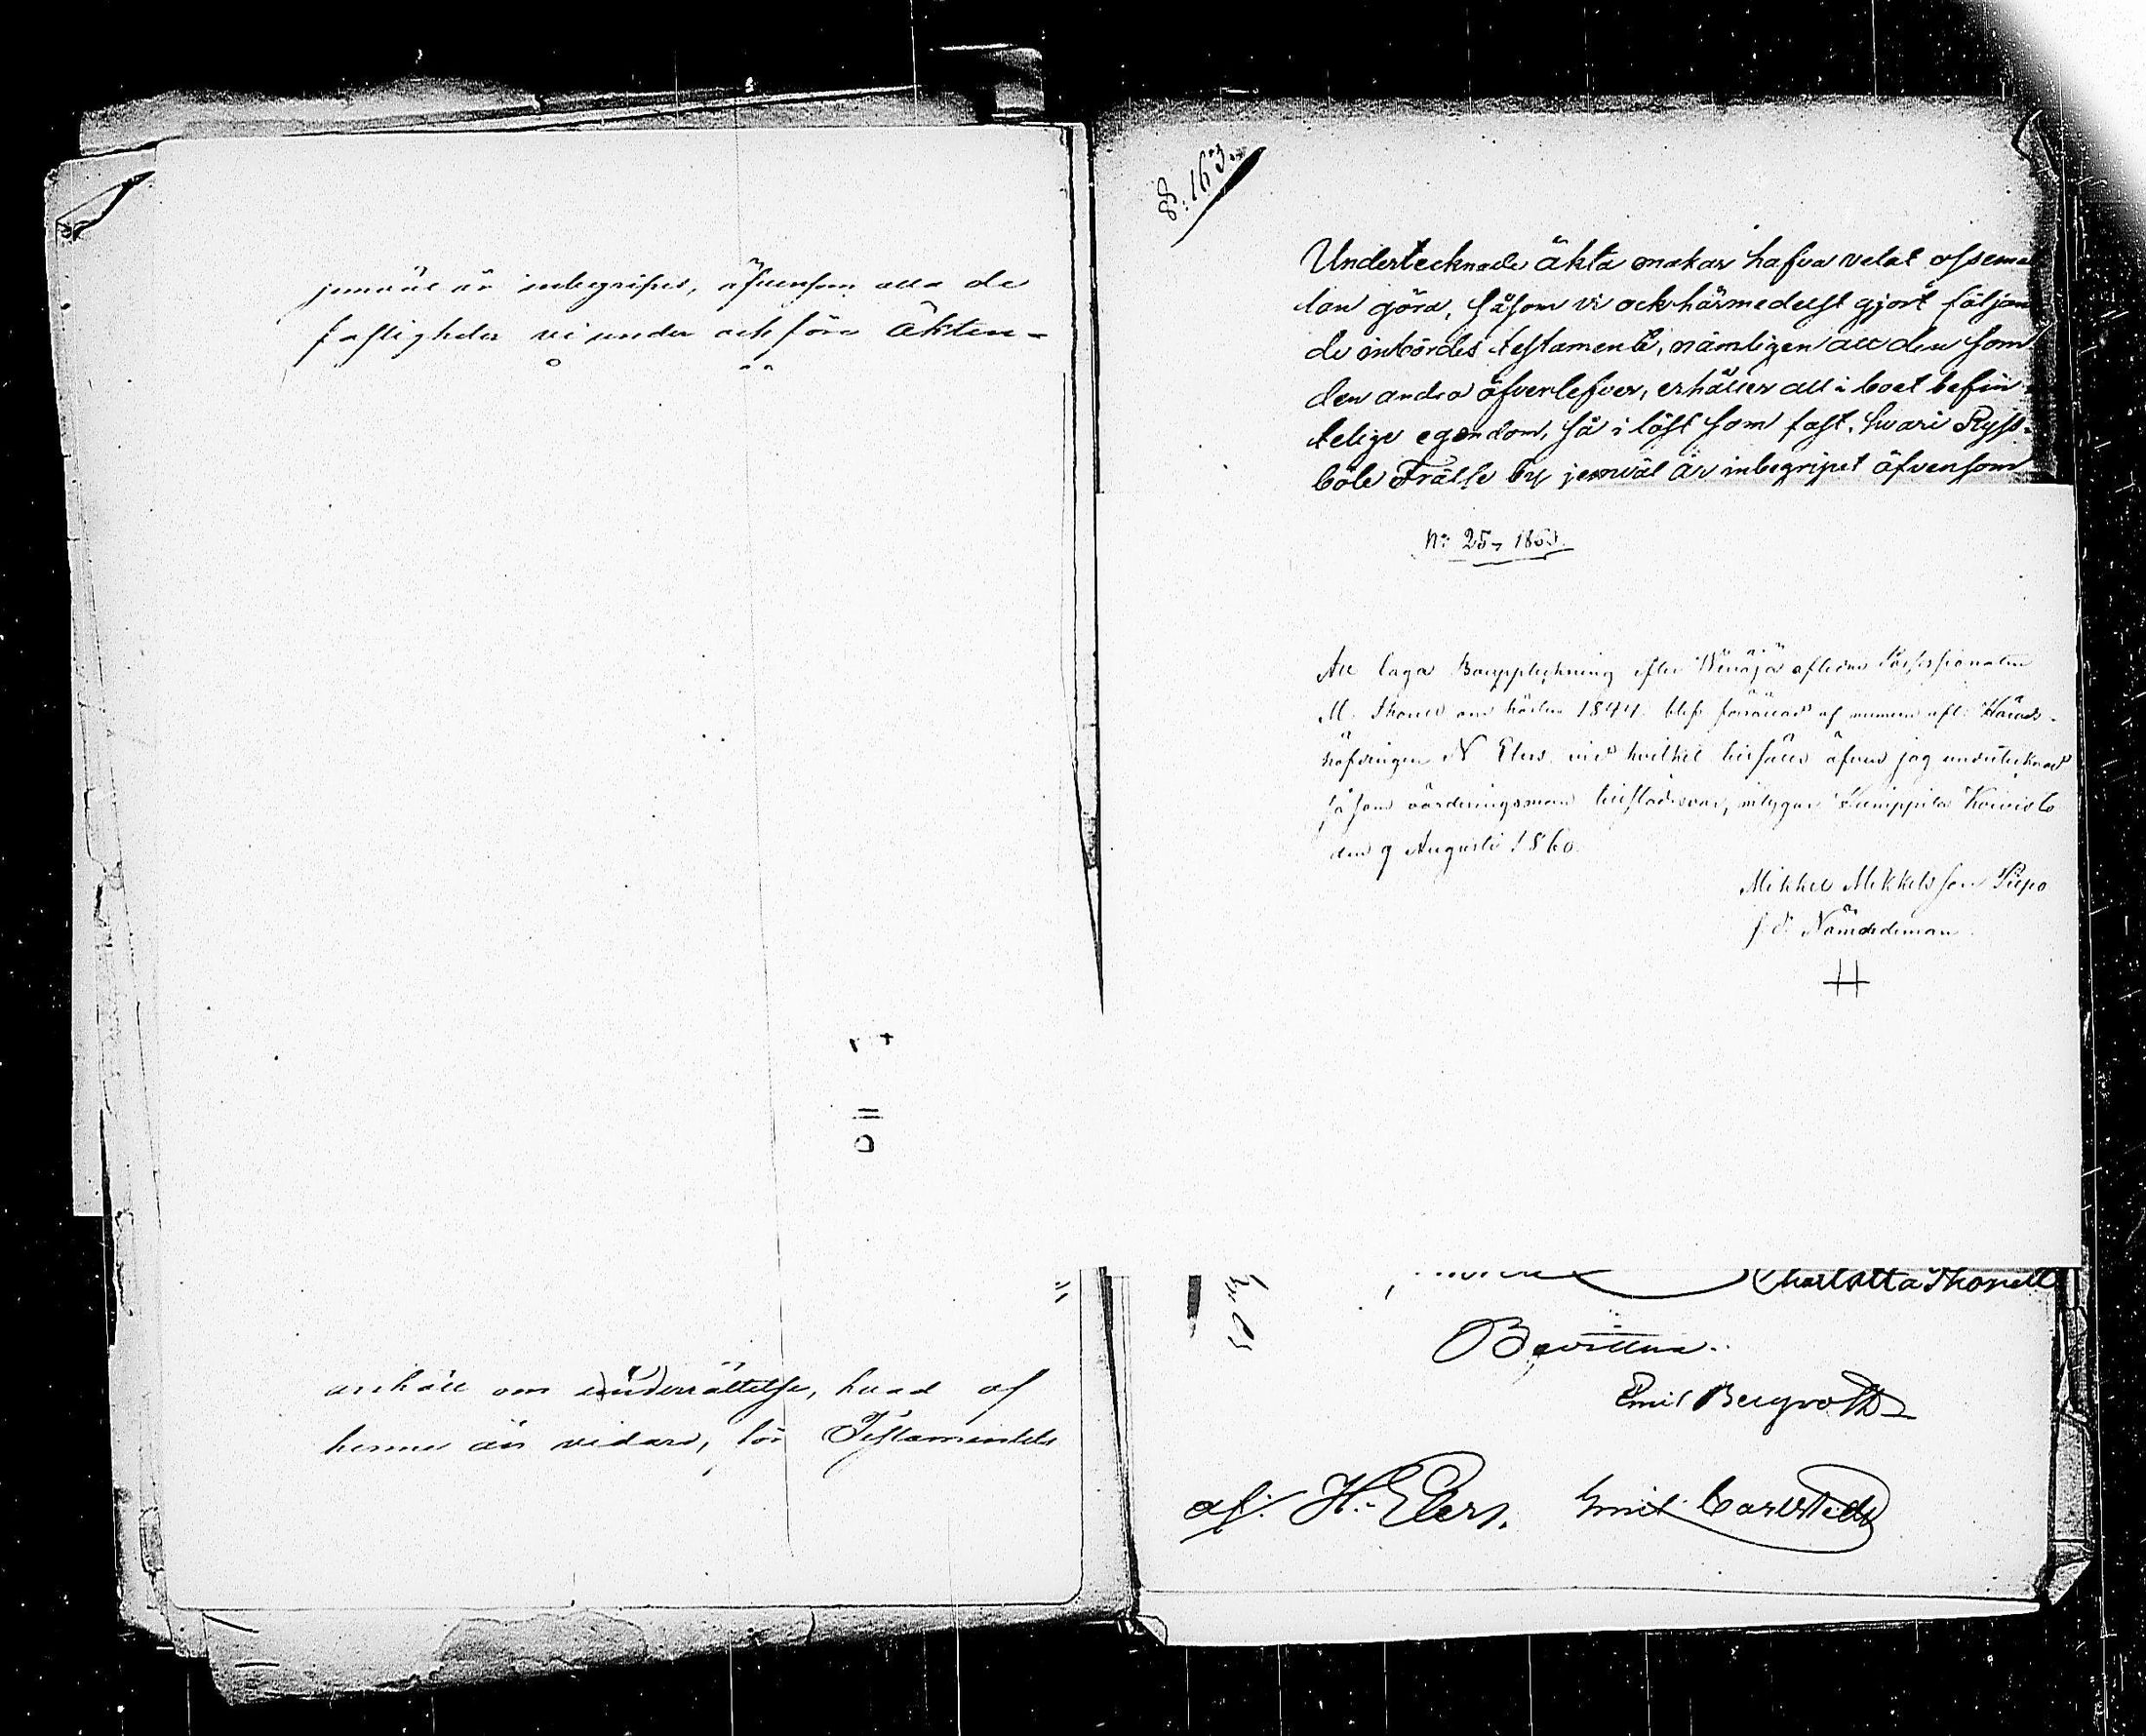 jemväl är inbegripet, äfvensom alla de
fastigheter vi under och före Äkten-
anhåll om underrättelse, hvad af
henne än vidare, för Testamentets
8:163.
Undertecknade äkta makar hafva velat ossemel
lan göra, såsom vi ock härmedelst gjort följan
de inbördes testamente, nämligen att den som
den andra öfverlefver, erhåller all i boet befin-
telige egendom, så i löst som fast, hvari Ryss-
böle Frälse by jemväl är inbegripet äfvensom
No 25, 1863.
Att laga Bouppteckning efter aflidne Possessionaten
M. Thorell om hösten 1844 blef förrättad af numera afl: Härads-
höfdingen N Elers, vid hvilket tillfälle äfven jag undertecknad
såsom värderingsman tillstädesvar, intygar Koivisto
den 9 Augusti 1860.
Mikkel Mikkelsson Piepo
f. d. Nämdeman.
Charlotta Thorell
Bevittna:
Emil Bergroth
af: H. Elers. Emil Carlstedt